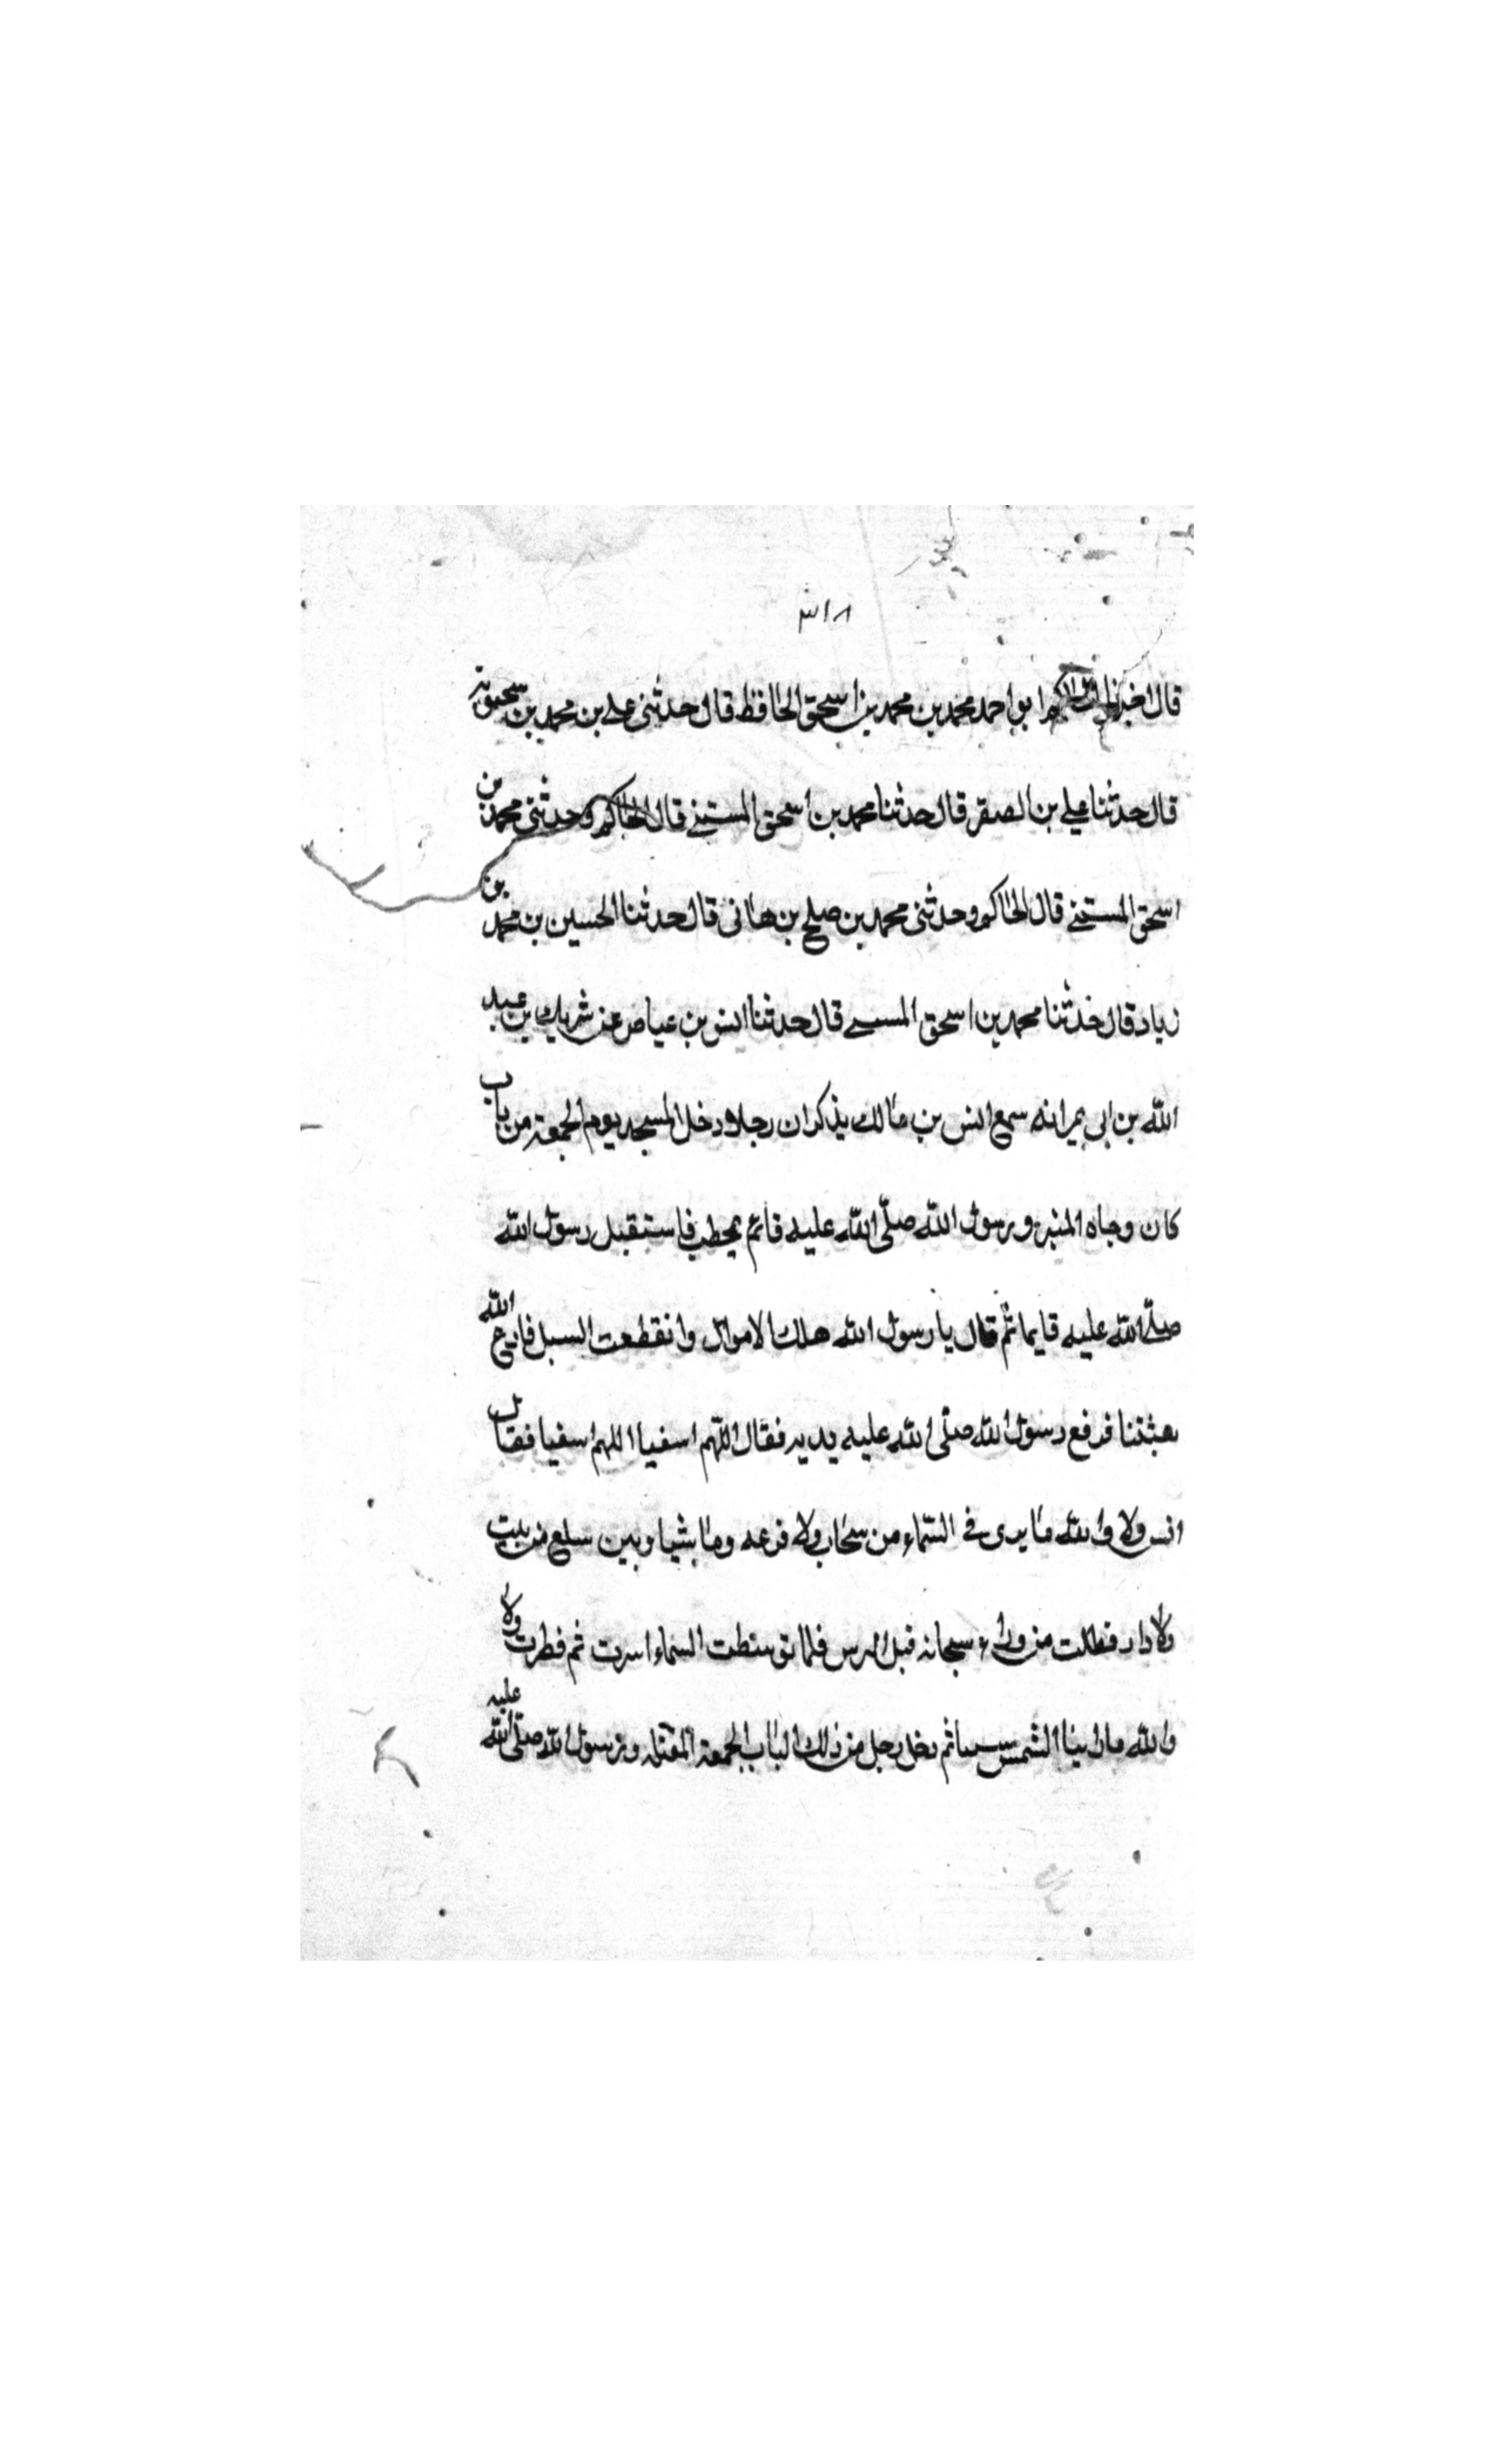 ٣١٨
قال اخبرنا الحاكم ابو احمد محمد بن محمد بن اسحق الحافظ قال حدثنى على بن محمد بن سحتويه
قال حدثنا على بن الصقر قال حدثنا محمد بن اسحق المستنى قال الحاكم وحدثنى محمد بن
اسحق المستنى قال الحاكم وحدثنى محمد بن صلح بن هانى قال حدثنا الحسين بن محمد بن
زياد قال حدثنا محمد بن اسحق المسى قال حدثنا انس بن عياض عن شريك بن عبد
الله بن ابى نمر انه سمع انس بن مالك يذكر ان رجلا دخل المسجد يوم الجمعة من باب
كان وجاه المنبر ورسول الله صلى الله عليه قائم يخطب فاستقبل رسول الله
صلى الله عليه قايما ثم قال يا رسول الله هلك الاموال وانقطعت السبل فادع الله
فرفع رسول الله صلى الله عليه يديه فقال اللهم اسقيا اللهم اسقيا فقال
انس ولا والله ما يرى في السماء من سحاب ولا قزعه وما بيننا وبين سلع من بيت
ولا دار فطلت من وراء سبحانه قبل الترس فلما توسطت السماء ثم فطرت ولا
والله ما راينا الشمس ثم دخل رجل من ذلك الباب الجمعة المقبله ورسول الله صلى الله عليه